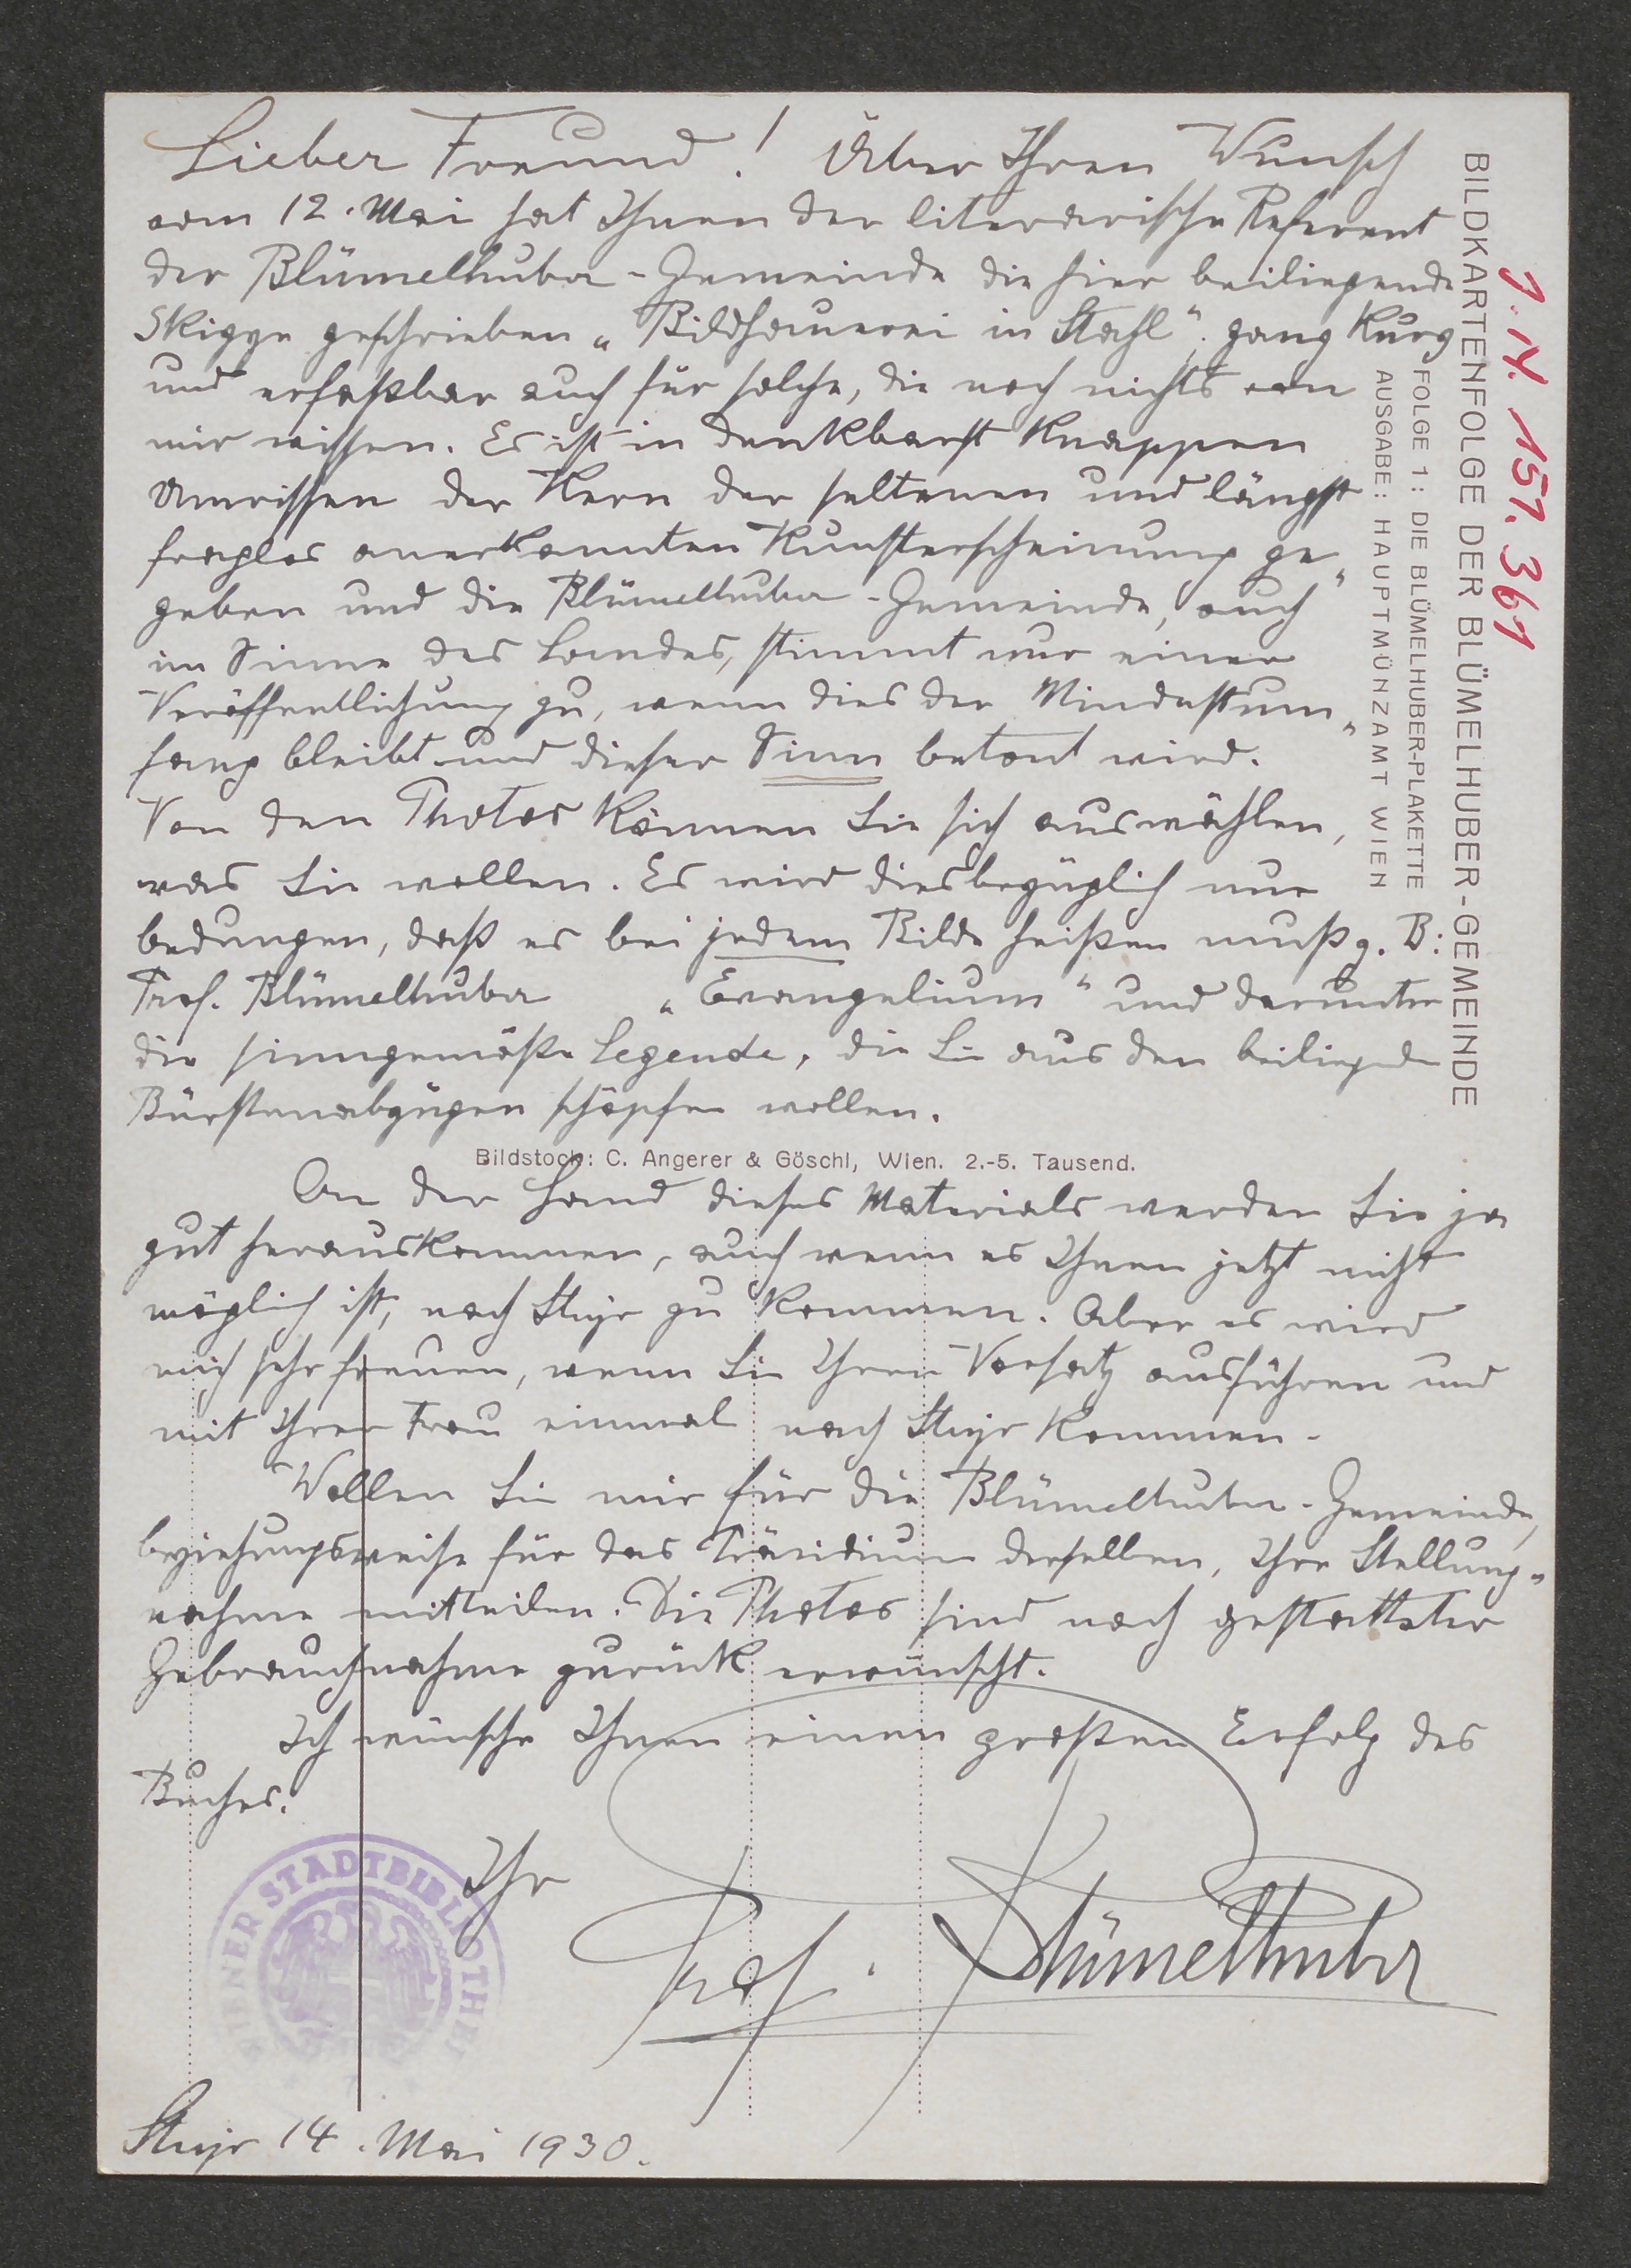 Lieber Freund! Über Ihren Wunsch
vom 12. Mai hat Ihnen der literarische Referent
der Blümelhuber-Gemeinde die hier beiliegende
Skizze geschrieben „Bildhauerei in Stahl“: ganz kurz
und erfaßbar auch für solche, die noch nichts von
mir wissen. Es ist in denkbarst knappen
Umrissen der Kern der seltenen und längst
fraglos anerkannten Kunsterscheinung ge-
geben und die Blümelhuber-Gemeinde, auch
im Sinne des Landes, stimmt nur einer
Veröffentlichung zu, wenn dies der Mindestum-
fang bleibt und dieser Sinn betont wird.
Von den Photos können Sie sich auswählen,
was Sie wollen. Es wird diesbezüglich nur
bedungen, daß es bei jedem Bilde heißen muß z. B:
Prof. Blümelhuber „Evangelium“ und darunter
die sinngemäße Legende, die Sie aus den beiliegenden
Bürstenabzügen schöpfen wollen.
Bildstock: C. Angerer & Göschl, Wien. 2.-5. Tausend.
An der Hand dieses Materials werden Sie ja
gut herauskommen, auch wenn es Ihnen jetzt nicht
möglich ist, nach Steyr zu kommen. Aber es wird
mich sehr freuen, wenn Sie Ihren Vorsatz ausführen und
mit Ihrer Frau einmal nach Steyr kommen.
Wollen Sie mir für die Blümelhuber-Gemeinde,
beziehungsweise für das Präsidium derselben, Ihre Stellung-
nahme mitteilen. Die Photos sind nach gestatteter
Gebrauchnahme zurück erwünscht.
Ich wünsche Ihnen einen großen Erfolg des
Buches.
Ihr
Prof. Blümelhuber
WIENER STADTBIBLIOTHEK
Steyr 14. Mai 1930.
BILDKARTENFOLGE DER BLÜMELHUBER-GEMEINDE
FOLGE 1: DIE BLÜMELHUBER-PLAKETTE
AUSGABE: HAUPTMÜNZAMT WIEN
J. N. 157.361